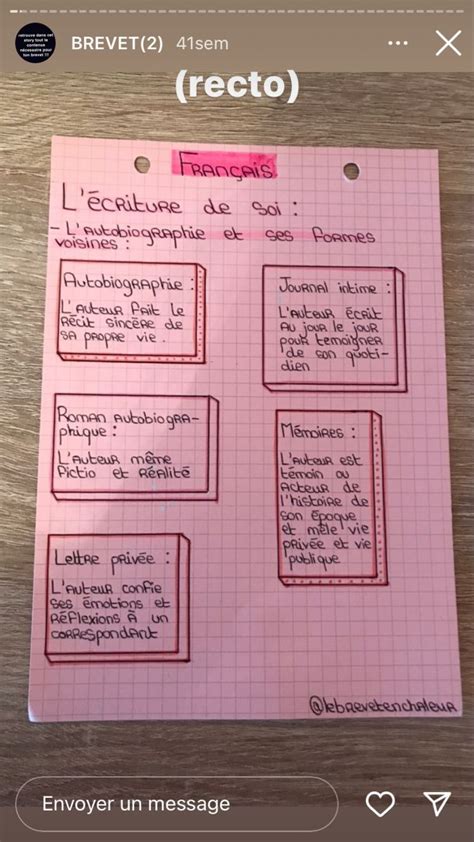 retrouve dans cet
story tout le
contenue
nécessaire pour
ton brevet !!!
BREVET(2) 41sem
(recto)
Français
L'écriture de soi :
- L'autobiographie et ses formes
voisines :
Autobiographie :
L'auteur fait le
récit sincère de
sa propre vie.
Journal intime :
L'auteur écrit
au jour le jour
pour temoigner
de son quoti-
dien
Roman autobiogra-
phique :
L'auteur même
fictio et réalité
Mémoires :
L'auteur est
témoin ou
acteur de
l'histoire de
son époque
et mêle vie
privée et vie
publique
Lettre privée :
L'auteur confie
ses émotions et
réflexions à un
correspondant
@lebrevetenchaleur
Envoyer un message